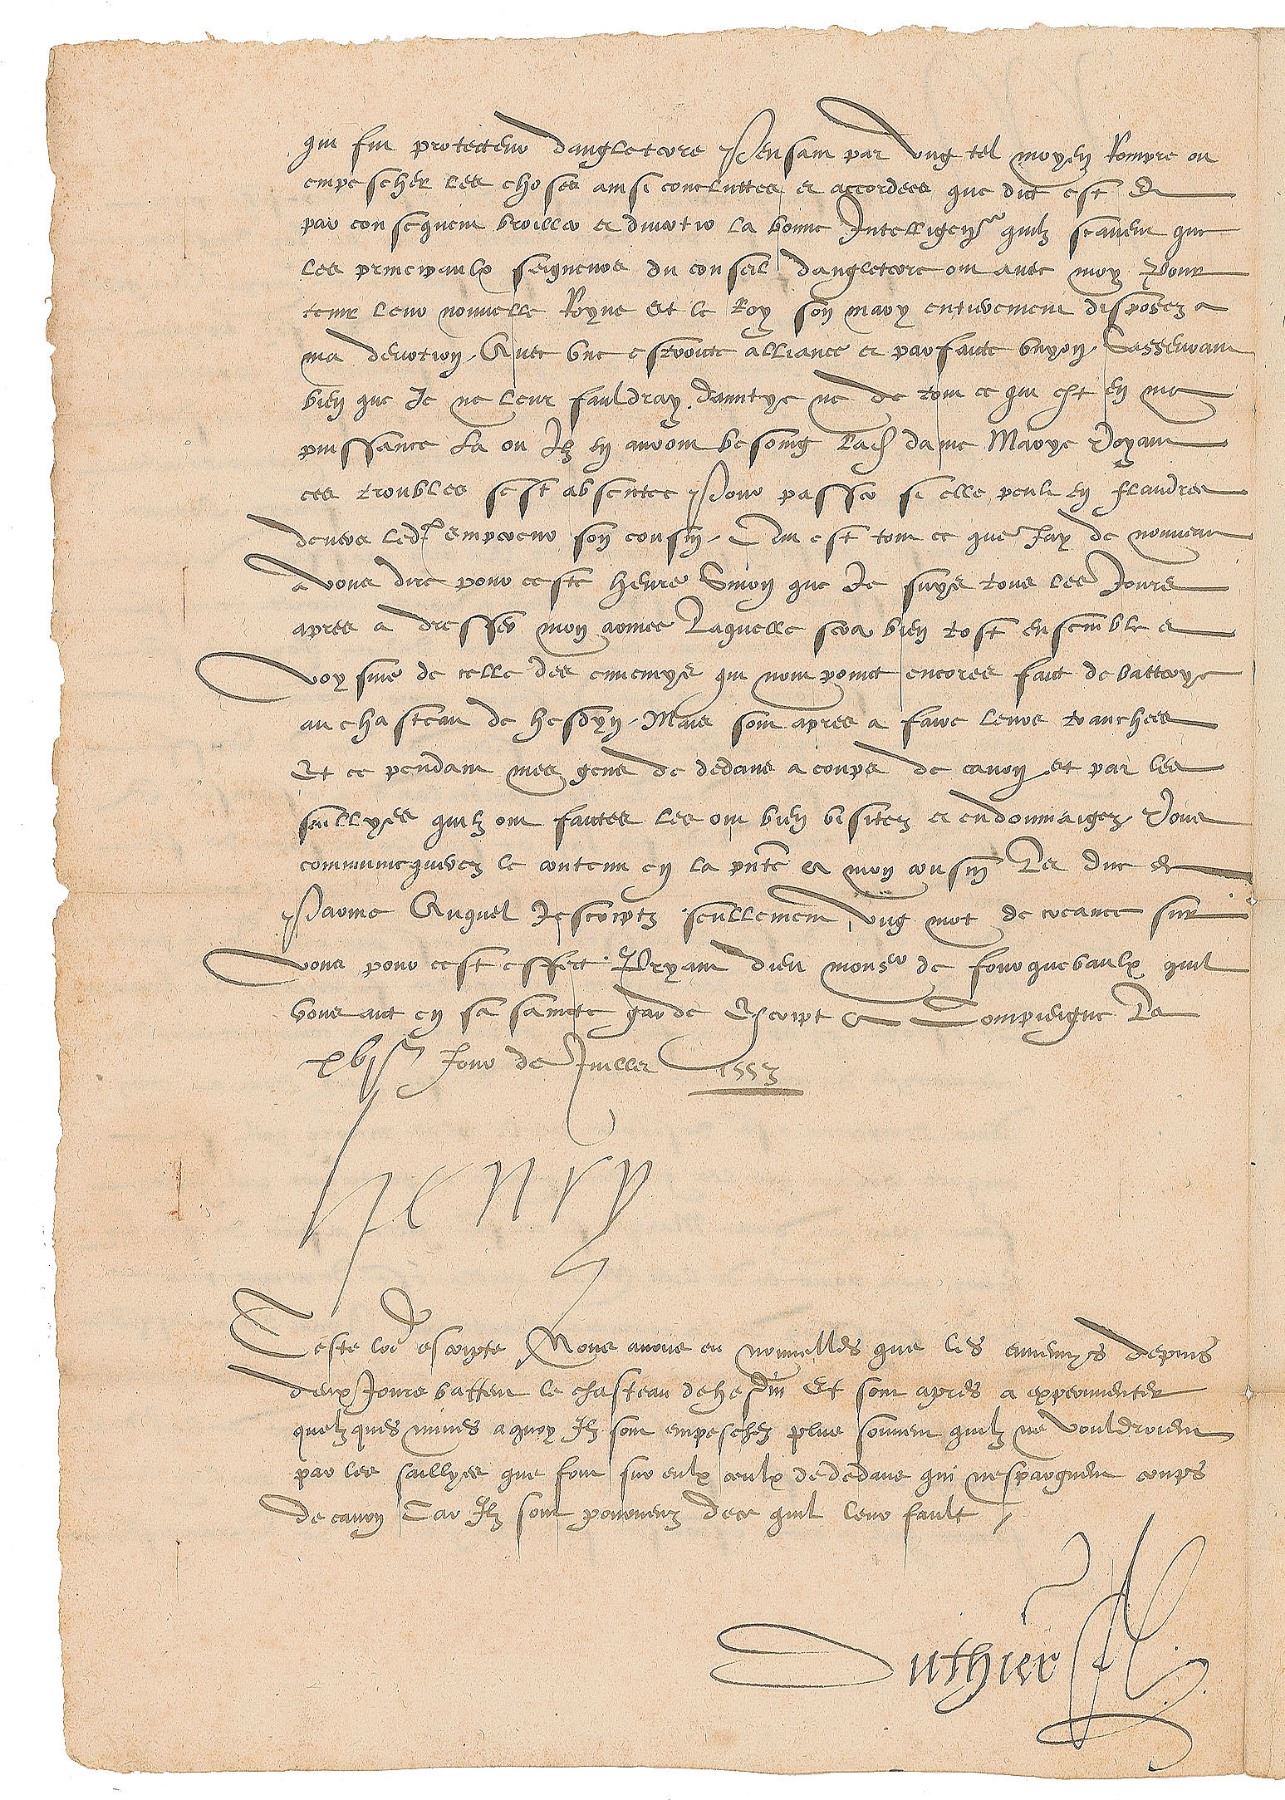 qui fut protecteur dangleterre Pensant par ung tel moyen Rompre ou
empescher les choses ainsi concluttes et accordees que dict est Et
par consequent broiller et divertir la bonne Intelligence quilz scavent que
les principaulx seigneurs du conseil dangleterre ont avec moy Pour
tenir leur nouvelle Royne et le Roy son mary entierement disposez a
ma devotion. Avec une estroicte alliance et parfaicte unyon. Sasseurant
bien que Je ne leur fauldray damytye ne de tout ce qui est en ma
puissance La ou Ilz en auront besoing Lad dame Marye Voyant
ces troubles sest absentee Pour passer si elle peult en flandres
devers led empereur son cousin. Qui est tout ce que Jay de nouveau
a vous dire pour ceste heure Sinon que Je suys tous les Jours
apres a dresser mon armee Laquelle sera bien tost ensemble et
voysine de celle des ennemys qui nont point encores faict de batterye
au chasteau de hesdyn. Mais sont apres a faire leurs tranchees
Et ce pendant mes gens de dedans a coups de canon et par les
saillyes quilz ont faictes les ont bien visitez et endommaigez. Vous
communicquerez le contenu en la pnte a mon cousin Le duc de
Parme Auquel Jescriptz seullement ung mot de creance sur
vous pour cest effect. Pryant dieu monsr de fourquevaulx quil
vous ait en sa saincte garde Escript a Compieigne Le
xviije Jour de Juillet 1553
henry
Ceste lre escripte Nous avons eu nouvelles que les ennemys depuis
deux Jours battent le chasteau de hesdin Et sont apres a experimenter
quelzques mines a quoy Ilz sont empeschez plus souvent quilz ne vouldroient
par les saillyes que font sur eulx ceulx de dedans qui nespargnent coups
de canon Car Ilz sont pourveuz de ce quil leur fault
Duthier